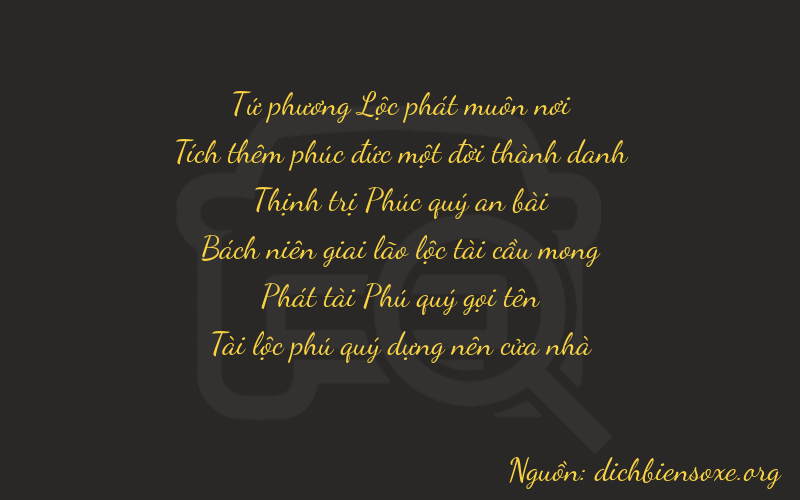 Tứ phương Lộc phát muôn nơi
Tích thêm phúc đức một đời thành danh
Thịnh trị Phúc quý an bài
Bách niên giai lão lộc tài cầu mong
Phát tài Phú quý gọi tên
Tài lộc phú quý dựng nên cửa nhà
Nguồn: dichbiensoxe.org